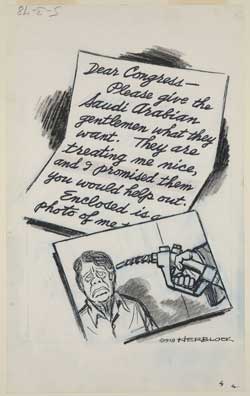 Dear Congress—
Please give the
Saudi Arabian
gentlemen what they
want. They are
treating me nice,
and I promised them
you would help out.
Enclosed is a
photo of me
©1978 HERBLOCK